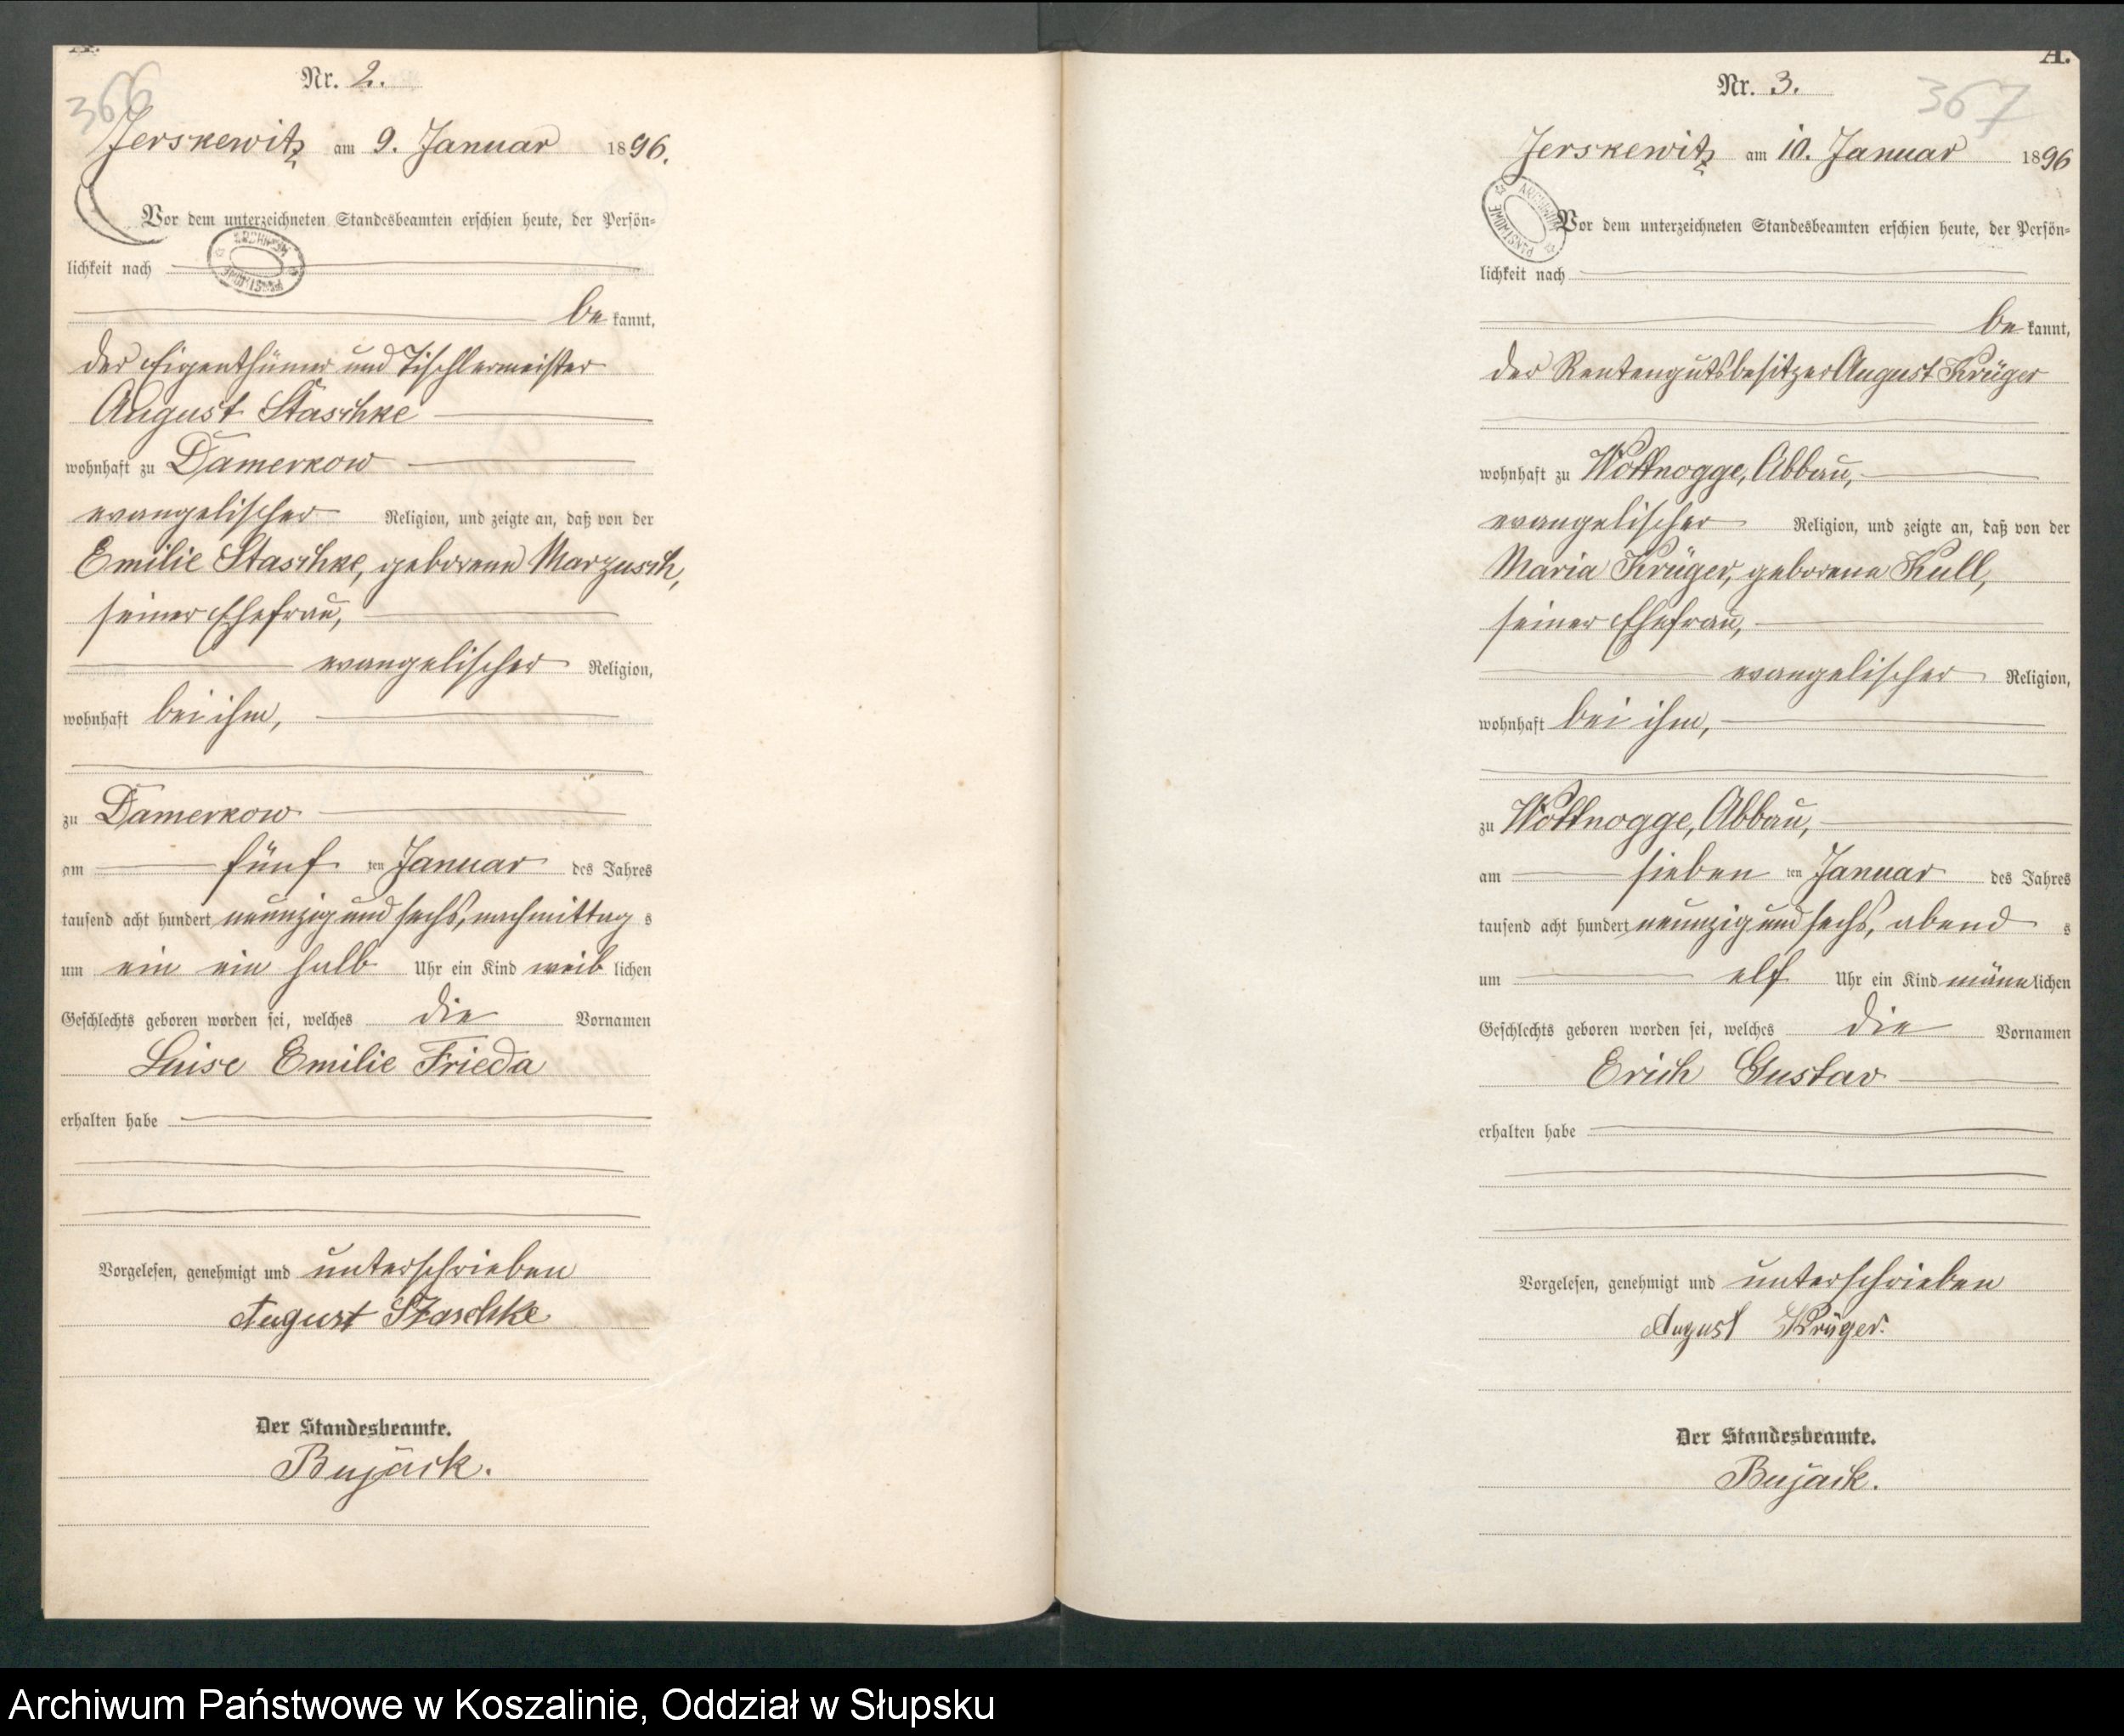 A.
366
Nr. 2.
Jerskewitz am 9. Januar 1896.
Vor dem unterzeichneten Standesbeamten erschien heute, der Persön-
lichkeit nach
ARCHIWUM PAŃSTWOWE
be kannt,
der Eigenthümer und Tischlermeister
August Staschke
wohnhaft zu Damerkow
evangelischer Religion, und zeigte an, daß von der
Emilie Staschke, geborene Marzusch,
seiner Ehefrau,
evangelischer Religion,
wohnhaft bei ihm,
zu Damerkow
am fünf ten Januar des Jahres
tausend acht hundert neunzig und sechs, nachmittag s
um ein ein halb Uhr ein Kind weib lichen
Geschlechts geboren worden sei, welches die Vornamen
Luise Emilie Frieda
erhalten habe
Vorgelesen, genehmigt und unterschrieben
August Staschke
Der Standesbeamte.
Bujack.
A.
367
Nr. 3.
Jerskewitz am 10. Januar 1896
ARCHIWUM PAŃSTWOWE
Vor dem unterzeichneten Standesbeamten erschien heute, der Persön-
lichkeit nach
be kannt,
der Rentengutsbesitzer August Krüger
wohnhaft zu Wottnogge, Abbau,
evangelischer Religion, und zeigte an, daß von der
Maria Krüger, geborene Kull,
seiner Ehefrau,
evangelischer Religion,
wohnhaft bei ihm,
zu Wottnogge, Abbau,
am sieben ten Januar des Jahres
tausend acht hundert neunzig und sechs, abend s
um elf Uhr ein Kind männ lichen
Geschlechts geboren worden sei, welches die Vornamen
Erich Gustav
erhalten habe
Vorgelesen, genehmigt und unterschrieben
August Krüger.
Der Standesbeamte.
Bujack.
Archiwum Państwowe w Koszalinie, Oddział w Słupsku